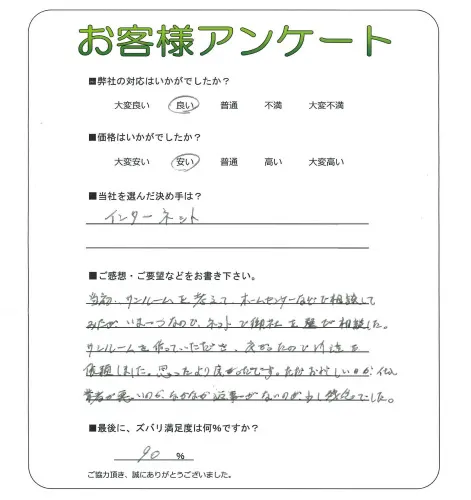 お客様アンケート
■弊社の対応はいかがでしたか？
大変良い 良い 普通 不満 大変不満
■価格はいかがでしたか？
大変安い 安い 普通 高い 大変高い
■当社を選んだ決め手は？
インターネット
■ご感想・ご要望などをお書き下さい。
当初、サンルームを考えて、ホームセンターなどで相談して
みたがいま一つなので、ネットで御社を 相談した。
サンルームを作っていただき、良かったので を
依頼しました。思ったより です。ただ
業者が悪いのか、なかなか返事がないのが少し残念でした。
■最後に、ズバリ満足度は何%ですか？
90 %
ご協力頂き、誠にありがとうございました。